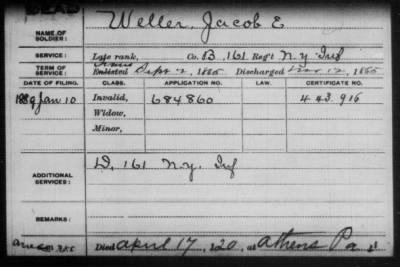 DEAD
NAME OF SOLDIER: Weller, Jacob E
SERVICE: Late rank, Co. B, 161 Reg't N.Y. Inf
TERM OF SERVICE: Enlisted Sept 2, 1865 Discharged Nov 12, 1865
DATE OF FILING. CLASS. APPLICATION NO. LAW. CERTIFICATE NO.
1889 Jan 10 Invalid, 684860 443.916
Widow,
Minor,
ADDITIONAL SERVICES: D, 161 N.Y. Inf
REMARKS:
Died April 17, 120, at Athens Pa